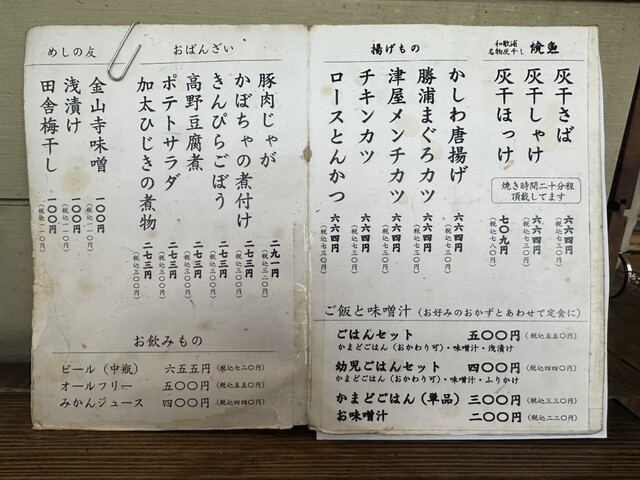 和歌浦
名物灰干し 焼魚
灰干さば 六六四円(税込七三〇円)
灰干しゃけ 六六四円(税込七三〇円)
灰干ほっけ 七〇九円(税込七八〇円)
焼き時間二十分程
頂戴してます
揚げもの
かしわ唐揚げ 六六四円(税込七三〇円)
勝浦まぐろカツ 六六四円(税込七三〇円)
津屋メンチカツ 六六四円(税込七三〇円)
チキンカツ 六六四円(税込七三〇円)
ロースとんかつ 六六四円(税込七三〇円)
ご飯と味噌汁(お好みのおかずとあわせて定食に)
ごはんセット 五〇〇円(税込五五〇円)
かまどごはん(おかわり可)・味噌汁・浅漬け
幼児ごはんセット 四〇〇円(税込四四〇円)
かまどごはん(おかわり可)・味噌汁・ふりかけ
かまどごはん(単品) 三〇〇円(税込三三〇円)
お味噌汁 二〇〇円(税込二二〇円)
おばんざい
豚肉じゃが 二九一円(税込三二〇円)
かぼちゃの煮付け 二七三円(税込三〇〇円)
きんぴらごぼう 二七三円(税込三〇〇円)
高野豆腐煮 二七三円(税込三〇〇円)
ポテトサラダ 二七三円(税込三〇〇円)
加太ひじきの煮物 二七三円(税込三〇〇円)
めしの友
金山寺味噌 一〇〇円(税込一一〇円)
浅漬け 一〇〇円(税込一一〇円)
田舎梅干し 一〇〇円(税込一一〇円)
お飲みもの
ビール(中瓶) 六五五円(税込七二〇円)
オールフリー 五〇〇円(税込五五〇円)
みかんジュース 四〇〇円(税込四四〇円)